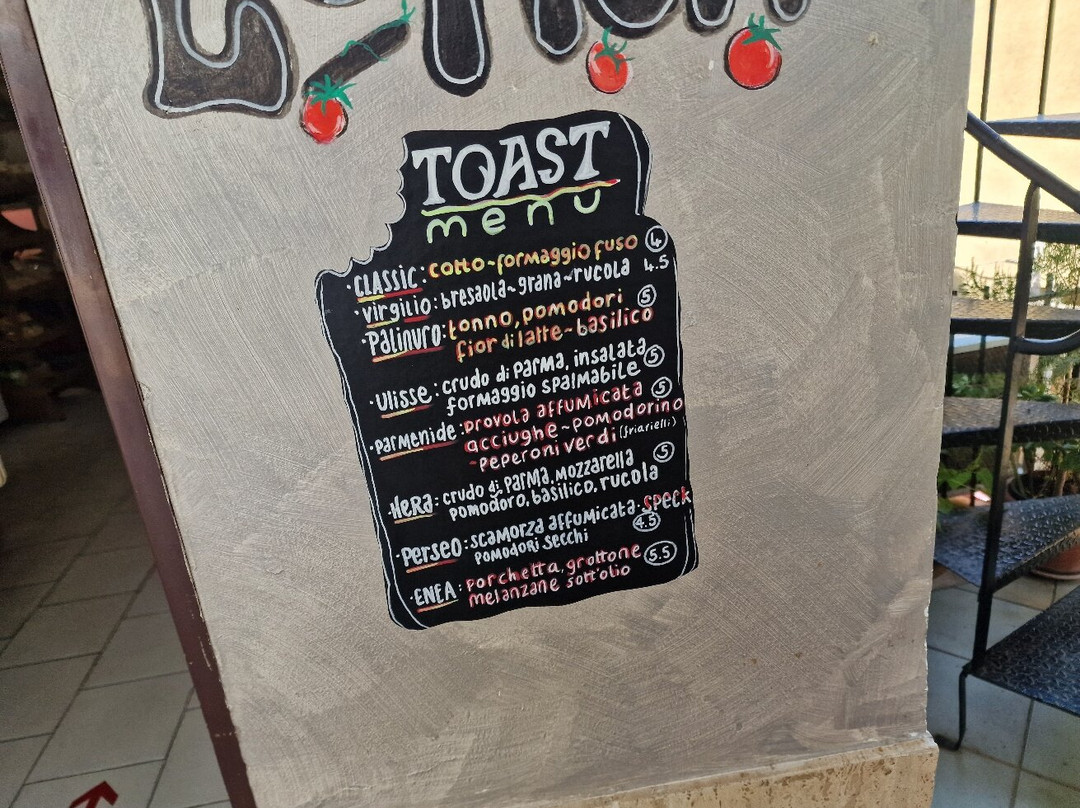 TOAST
menu
·CLASSIC·cotto~formaggio fuso 4
·virgilio: bresaola~grana~rucola 4.5
·Palinuro: tonno, pomodori 5
fior di latte~basilico
·Ulisse: crudo di Parma, insalata 5
formaggio spalmabile
·Parmenide: provola affumicata 5
acciughe~pomodorino
~peperoni verdi (friarielli)
·HERA: crudo di Parma, mozzarella 5
pomodoro, basilico, rucola
·Perseo: scamorza affumicata·speck
pomodori secchi 4.5
·ENEA: porchetta, grottone 5.5
melanzane sott'olio